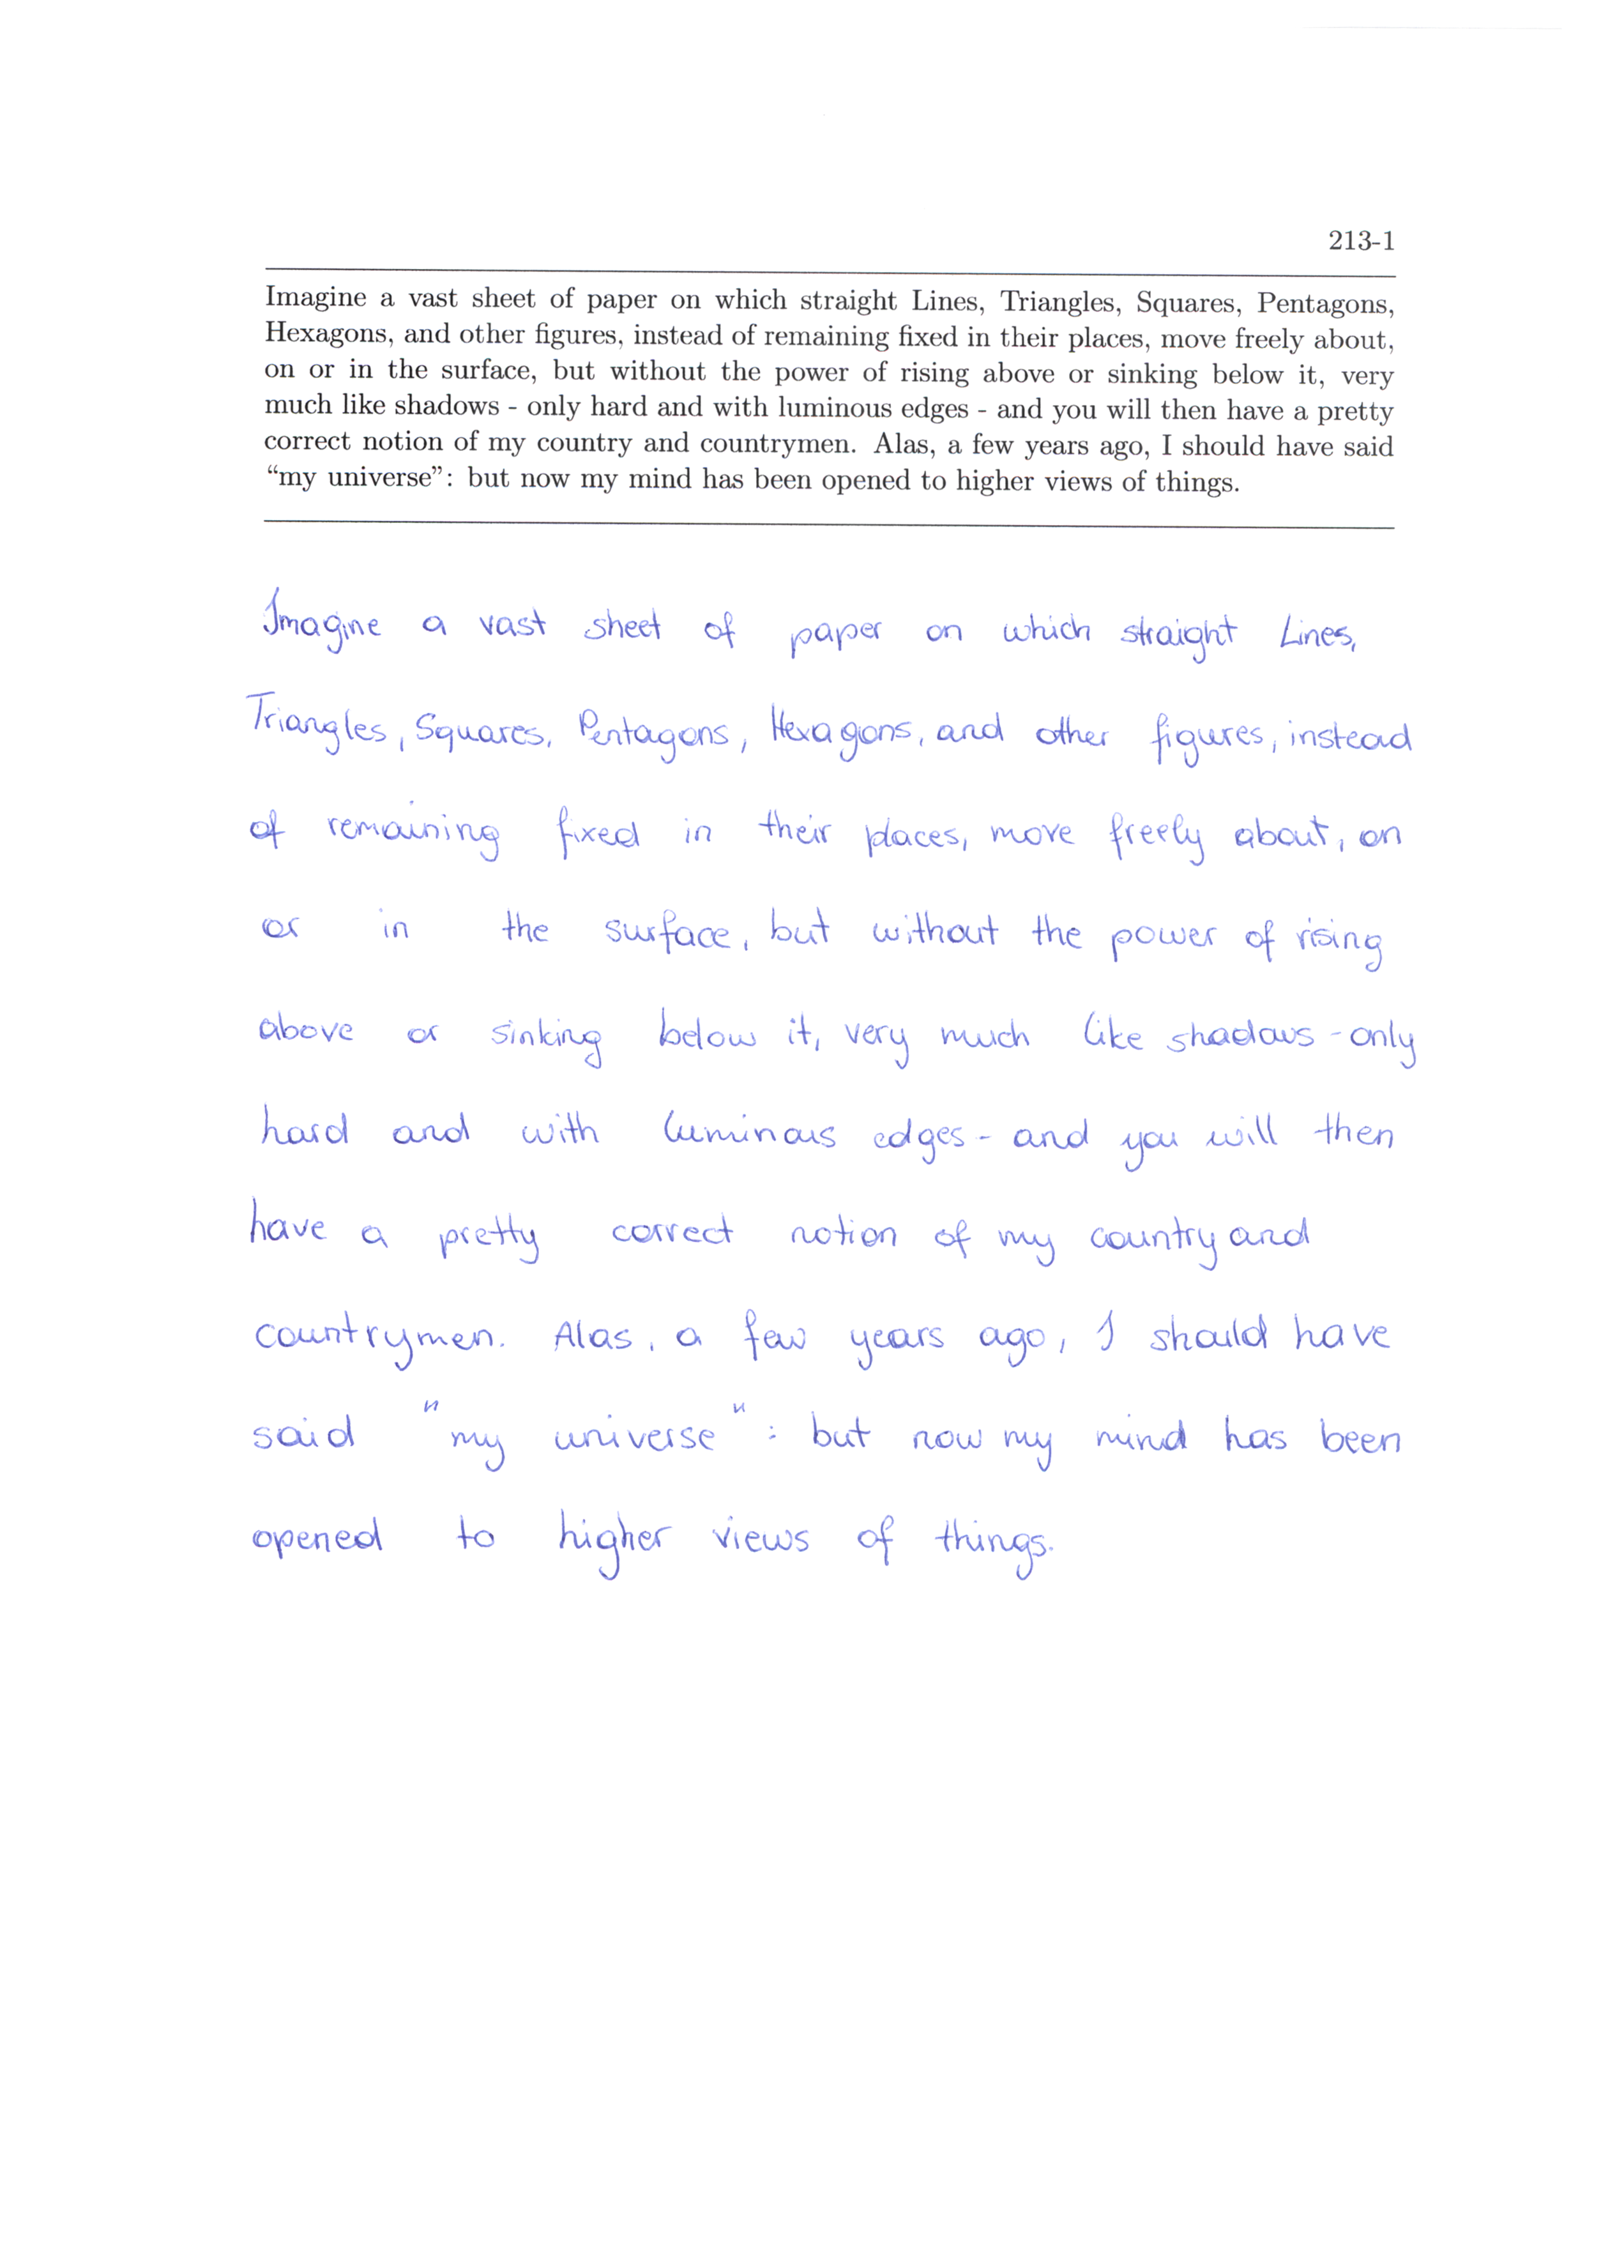 213-1
Imagine a vast sheet of paper on which straight Lines, Triangles, Squares, Pentagons,
Hexagons, and other figures, instead of remaining fixed in their places, move freely about,
on or in the surface, but without the power of rising above or sinking below it, very
much like shadows - only hard and with luminous edges - and you will then have a pretty
correct notion of my country and countrymen. Alas, a few years ago, I should have said
“my universe”: but now my mind has been opened to higher views of things.
Imagine a vast sheet of paper on which straight Lines,
Triangles, Squares, Pentagons, Hexagons, and other figures, instead
of remaining fixed in their places, move freely about, on
or in the surface, but without the power of rising
above or sinking below it, very much like shadows - only
hard and with luminous edges - and you will then
have a pretty correct notion of my country and
countrymen. Alas, a few years ago, I should have
said "my universe": but now my mind has been
opened to higher views of things.